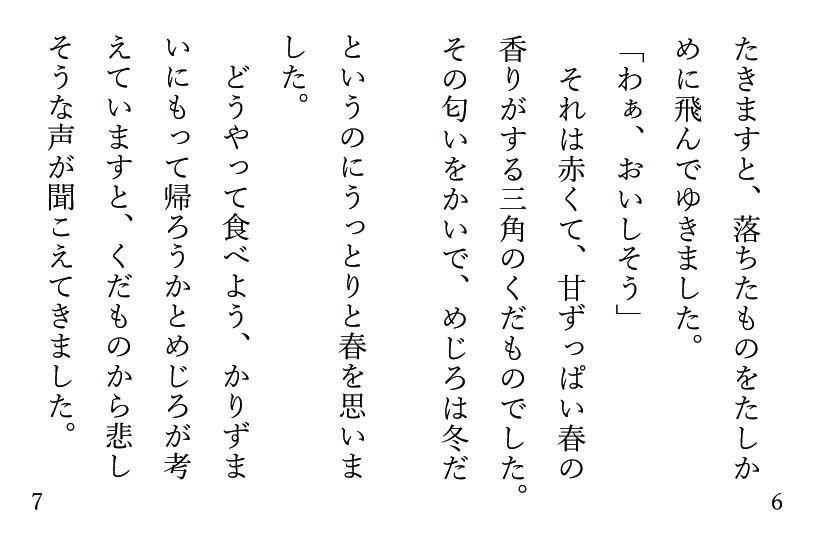 たきますと、落ちたものをたしか
めに飛んでゆきました。
「わぁ、おいしそう」
　それは赤くて、甘ずっぱい春の
香りがする三角のくだものでした。
その匂いをかいで、めじろは冬だ
6
というのにうっとりと春を思いま
した。
　どうやって食べよう、かりずま
いにもって帰ろうかとめじろが考
えていますと、くだものから悲し
そうな声が聞こえてきました。
7